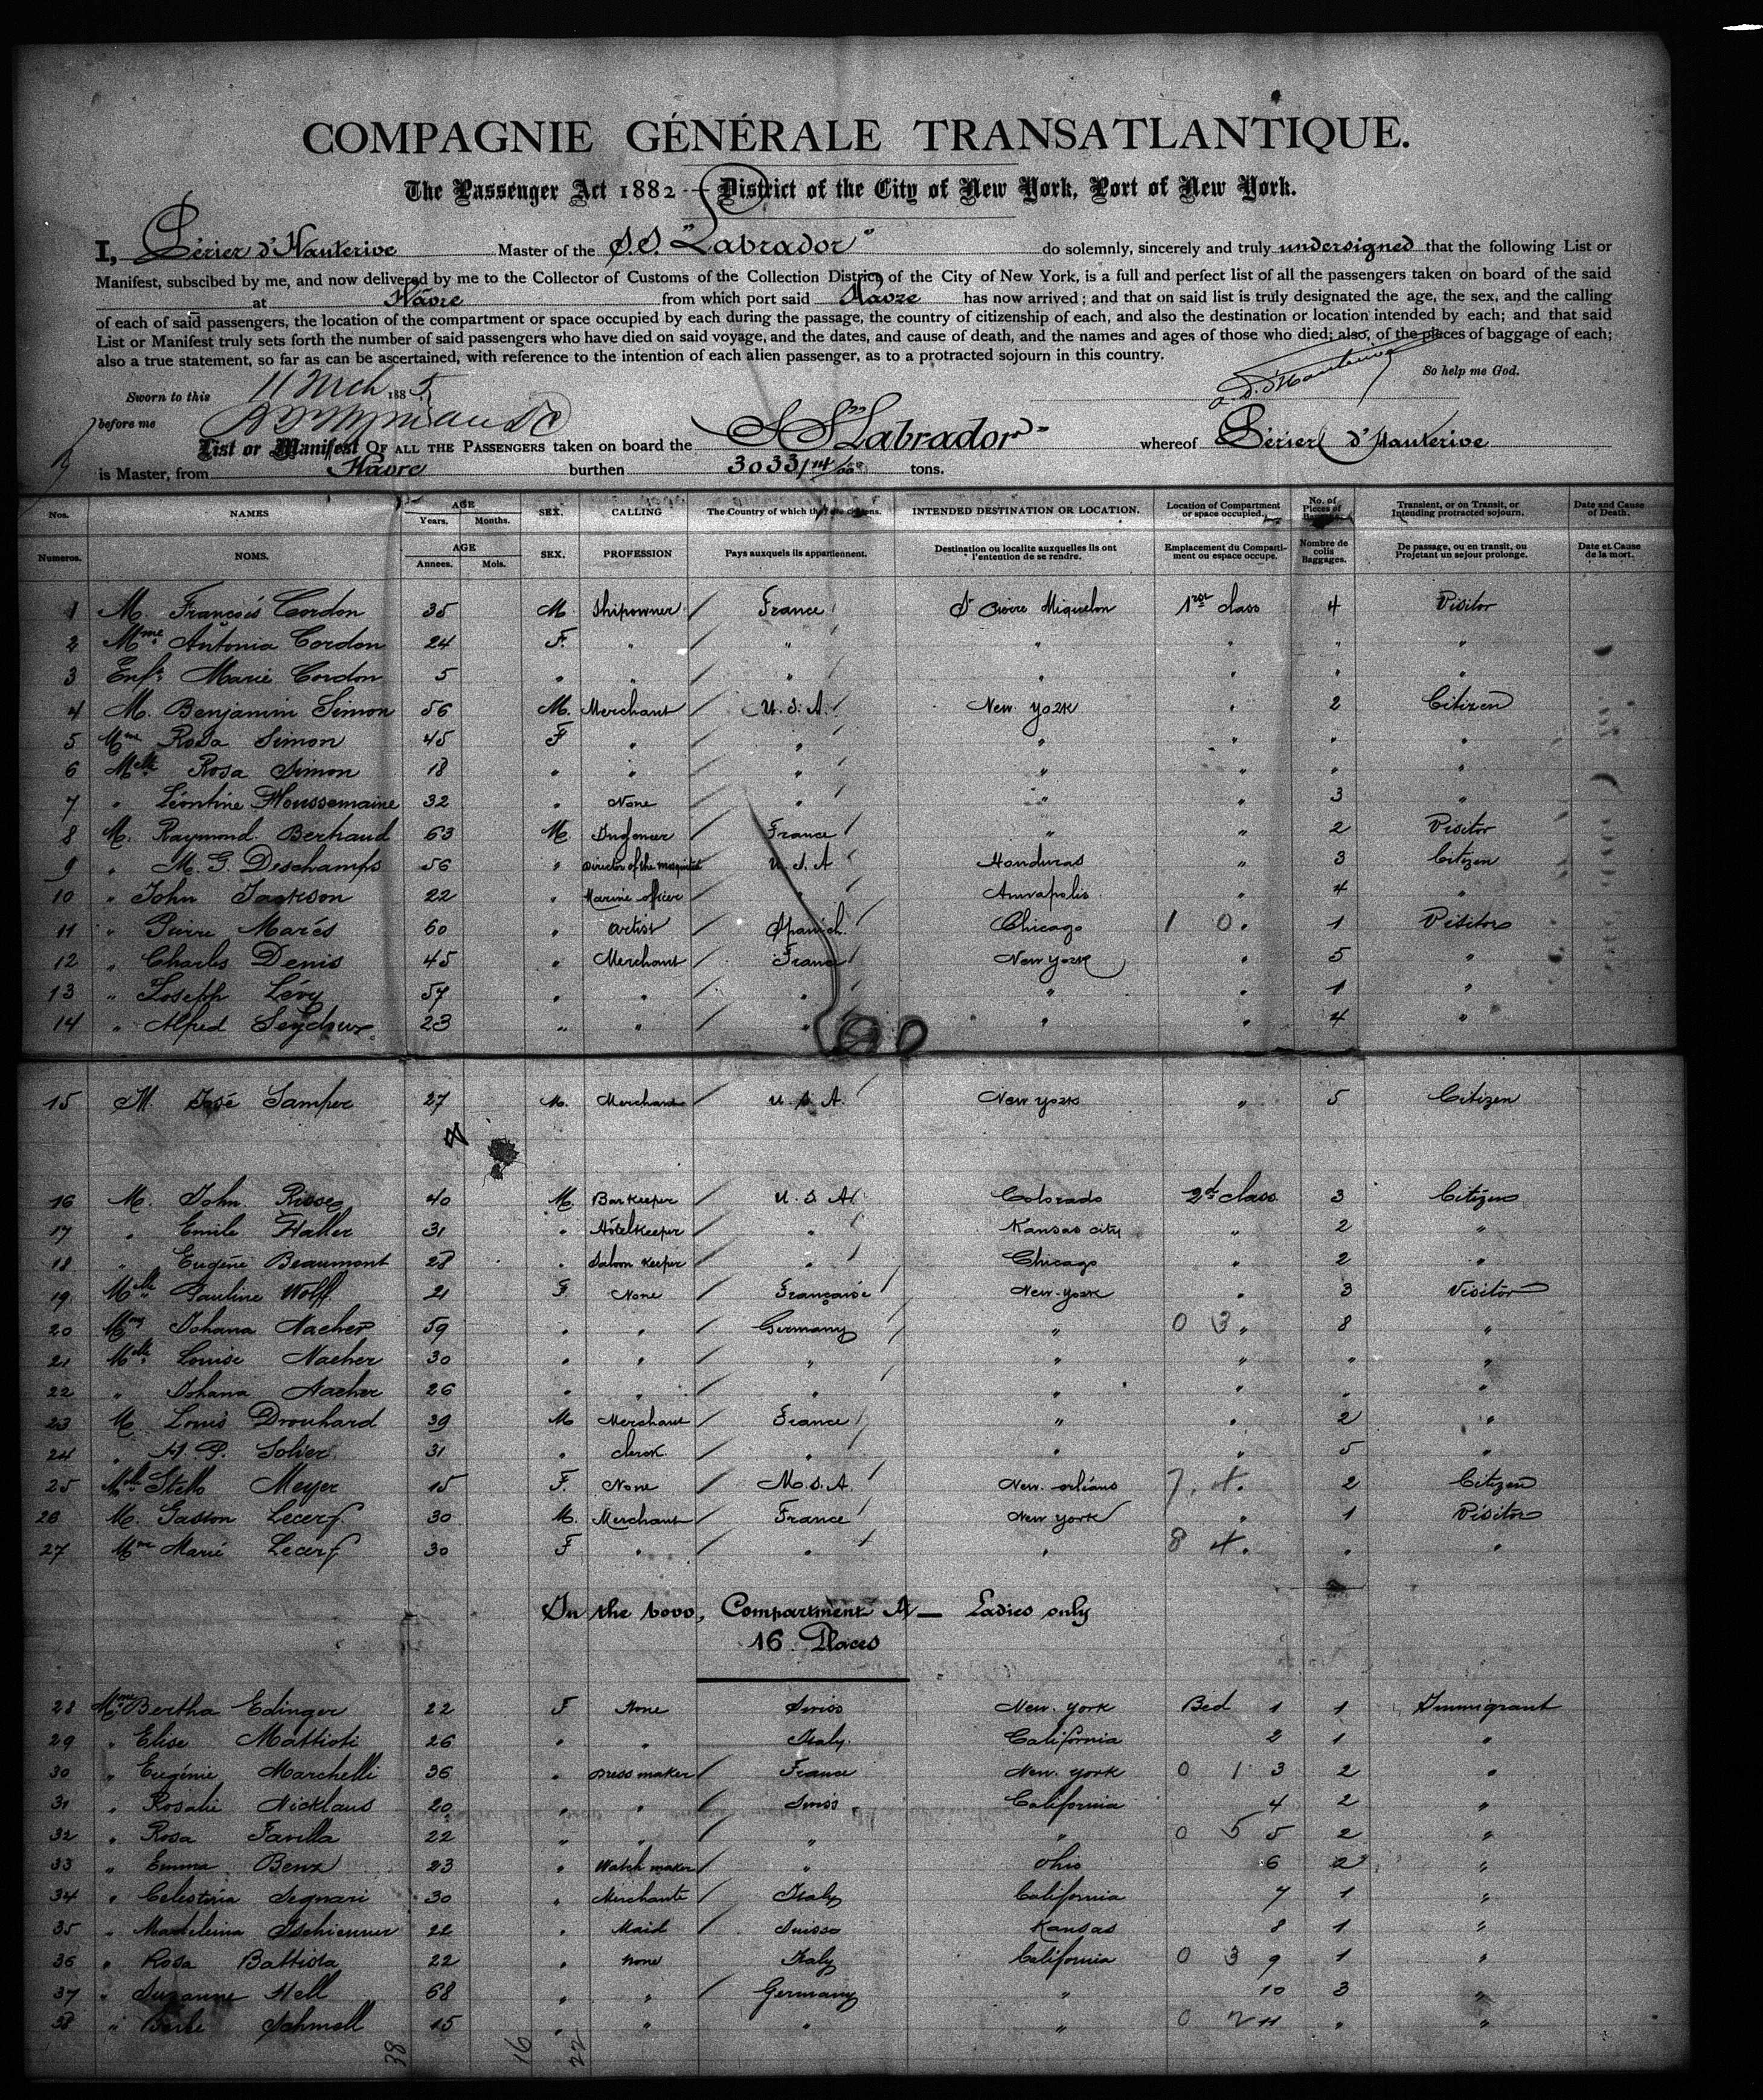 COMPAGNIE GÉNÉRALE TRANSATLANTIQUE.
The Passenger Act 1882 — District of the City of New York, Port of New York.
I, Périer d'Hauterive Master of the S.S. "Labrador" do solemnly, sincerely and truly undersigned that the following List or
Manifest, subscibed by me, and now delivered by me to the Collector of Customs of the Collection District of the City of New York, is a full and perfect list of all the passengers taken on board of the said
at Hâvre from which port said Havre has now arrived; and that on said list is truly designated the age, the sex, and the calling
of each of said passengers, the location of the compartment or space occupied by each during the passage, the country of citizenship of each, and also the destination or location intended by each; and that said
List or Manifest truly sets forth the number of said passengers who have died on said voyage, and the dates, and cause of death, and the names and ages of those who died; also, of the pieces of baggage of each;
also a true statement, so far as can be ascertained, with reference to the intention of each alien passenger, as to a protracted sojourn in this country.
So help me God.
Sworn to this 11 Mch 1885
before me
List or Manifest OF ALL THE PASSENGERS taken on board the SS "Labrador" whereof Périer d'Hauterive
is Master, from Hâvre burthen 3033 tons.
Nos. NAMES AGE Years. Months. SEX. CALLING The Country of which they are citizens. INTENDED DESTINATION OR LOCATION. Location of Compartment or space occupied. No. of Pieces of Transient, or on Transit, or Intending protracted sojourn. Date and Cause of Death.
Numeros. NOMS. AGE Annees. Mois. SEX. PROFESSION Pays auxquels ils appartiennent. Destination ou localite auxquelles ils ont l'entention de se rendre. Emplacement du Compartiment ou espace occupe. Nombre de colis Baggages. De passage, ou en transit, ou Projetant un sejour prolonge. Date et Cause de la mort.
1 M. François Cordon 35 M. Shipowner France St Pierre Miquelon 1rst class 4 Visitor
2 Mme Antonia Cordon 24 F. " " " " " "
3 Enft Marie Cordon 5 " " " " " " "
4 M. Benjamin Simon 56 M. Merchant U.S.A. New York " 2 Citizen
5 Mme Rosa Simon 45 F " " " " " "
6 Melle Rosa Simon 18 " " " " " " "
7 " Léontine Houssemaine 32 " None " " " 3 "
8 M. Raymond Berhaud 63 M. Ingeneer France " " 2 Visitor
9 " M. G. Deschamps 56 " Director of the U.S.A Honduras " 3 Citizen
10 " John Jackson 22 " Marine officer " Annapolis " 4 "
11 " Pierre Marés 60 " artist Spanich Chicago 1 0 " 1 Visitor
12 " Charles Denis 45 " Merchant France New York " 5 "
13 " Joseph Lévy 57 " " " " " 1 "
14 " Alfred 23 " " " " " 4 "
15 M. José Samper 27 M. Merchand U.S.A. New York " 5 Citizen
16 M. John 40 M. Barkeeper U.S.A. Colorado 2d class 3 Citizen
17 " Emile Haller 31 " Hôtelkeeper " Kansas city " 2 "
18 " Eugène Beaumont 28 " Saloon keeper " Chicago " 2 "
19 Melle Pauline Wolff 21 F. None Française New-York " 3 Visitor
20 Mme Johana Nacher 59 " " Germany " 0 3 " 8 "
21 Melle Louise Nacher 30 " " " " " " "
22 " Johana Nacher 26 " " " " " " "
23 M. Louis Drouhard 39 M Merchant France " " 2 "
24 " A. P. Solier 31 " clerck " " " 5 "
25 Melle Stella Meyer 15 F. None U.S.A. New. orléans 7. 4. 2 Citizen
26 M. Gaston Lecerf 30 M. Merchant France New York " 1 Visitor
27 Mme Marie Lecerf 30 F " " " 8 4. " "
In the bow, Compartment A — Ladies only
16 Places
28 Mme Bertha Edinger 22 F None Swiss New. York Bed 1 1 Immigrant
29 " Elise Mattioti 26 " " Italy California 2 1 "
30 " Eugénie Marchelli 36 " Dress maker France New. York 0 1 3 2 "
31 " Rosalie Nicklaus 20 " " Swiss California 4 2 "
32 " Rosa Favilla 22 " " " " 0 5 5 2 "
33 " Emma Benz 23 " Watch maker " Ohio 6 2 "
34 " Celestina Segnari 30 " Merchante Italy California 7 1 "
35 " Madeleina 22 " Maid Suisse Kansas 8 1 "
36 " Rosa Battista 22 " None Italy California 0 3 9 1 "
37 " Suzanne Hell 68 " " Germany " 10 3 "
38 " Schmell 15 " " " " 0 2 11 " "
38 16 22